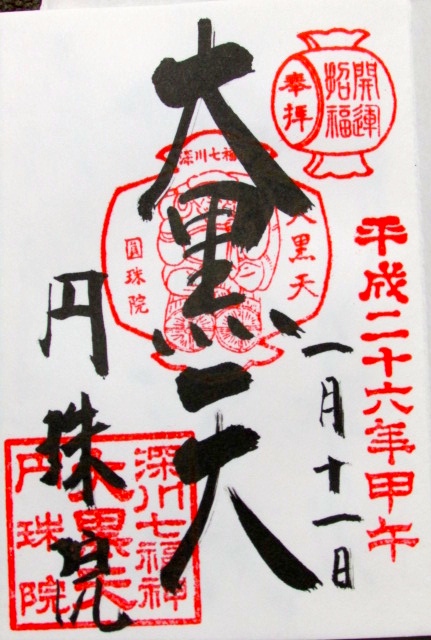 開運
招福
奉拝
平成二十六年甲午
一月十一日
深川七福
大黒天
圓珠院
大黒天
円珠院
深川七福神
大黒天
円珠院